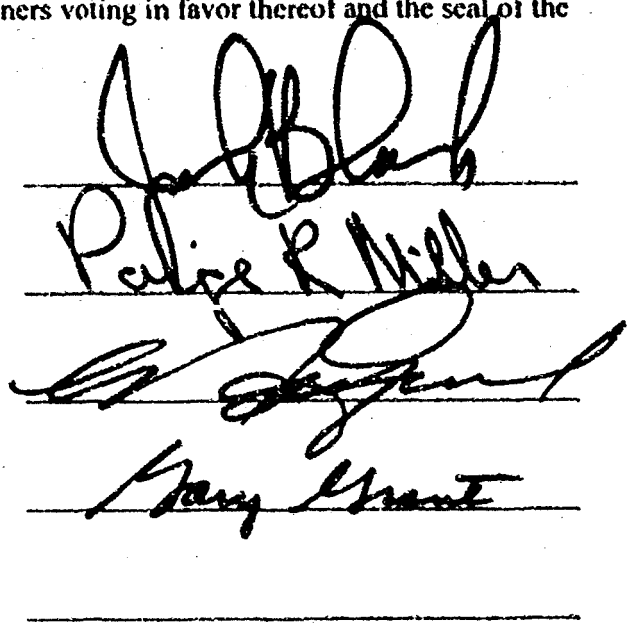 ners voting in favor thereof and the seal of the
Jack Block
Paige R Miller
Gary Grant